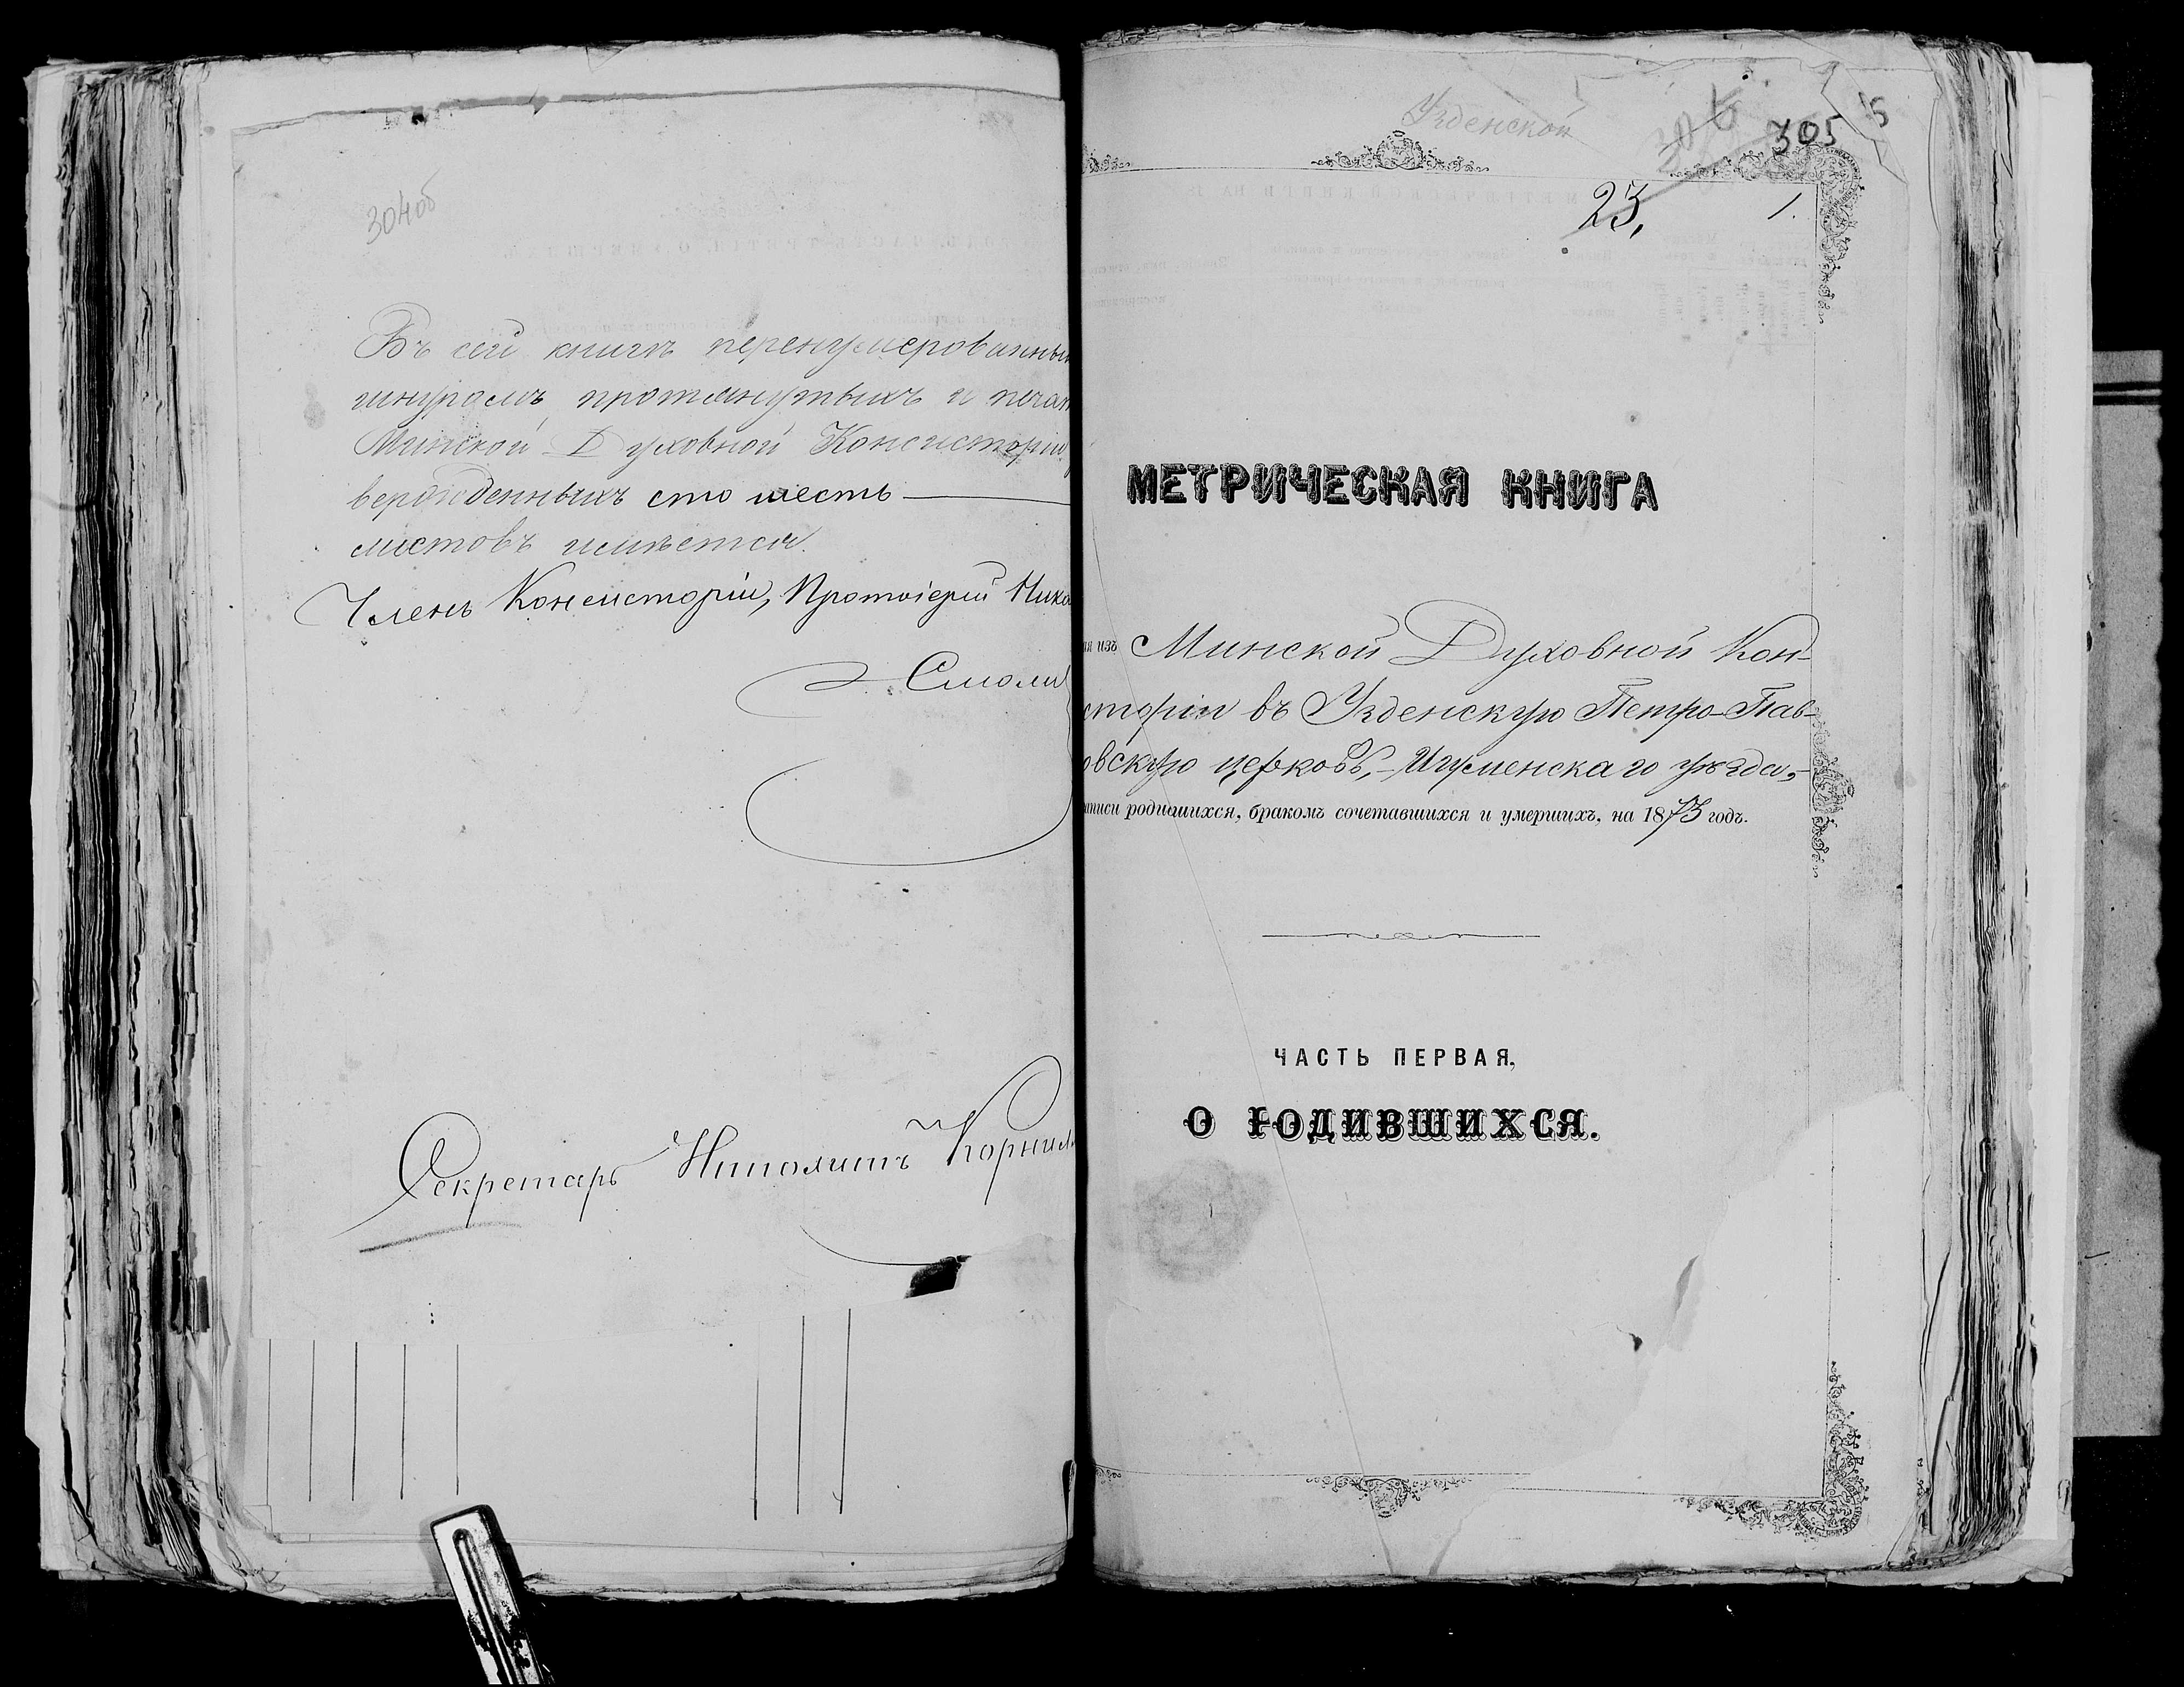 304об
Въ сей книгѣ перенумерованных
шнуромъ протянутыхъ и печат
Минской Духовной Консисторіи
вержденныхъ сто шесть
листовъ имѣется.
Членъ Консисторіи, Протоіерей Нико
Смоли
Секретарь Ипполитъ Корнил
Узденской
305
23,
1.
МЕТРИЧЕСКАЯ КНИГА
ая изъ Минской Духовной Кон-
систоріи въ Узденскую Петро-Пав-
овскую церковь, Игуменскаго уѣзда,
писи родившихся, бракомъ сочетавшихся и умершихъ, на 1873 годъ.
ЧАСТЬ ПЕРВАЯ,
О РОДИВШИХСЯ.